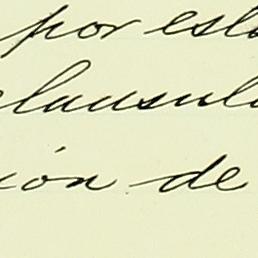 por est
clausul
ión de